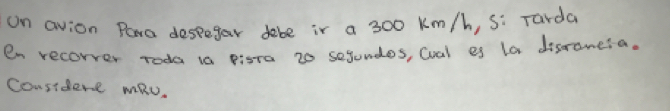 Un avion Para despegar debe ir a 300 Km/h, Si Tarda
en recorrer Toda la Pista 20 segundos, Cual es la distancia.
Considere MRU.